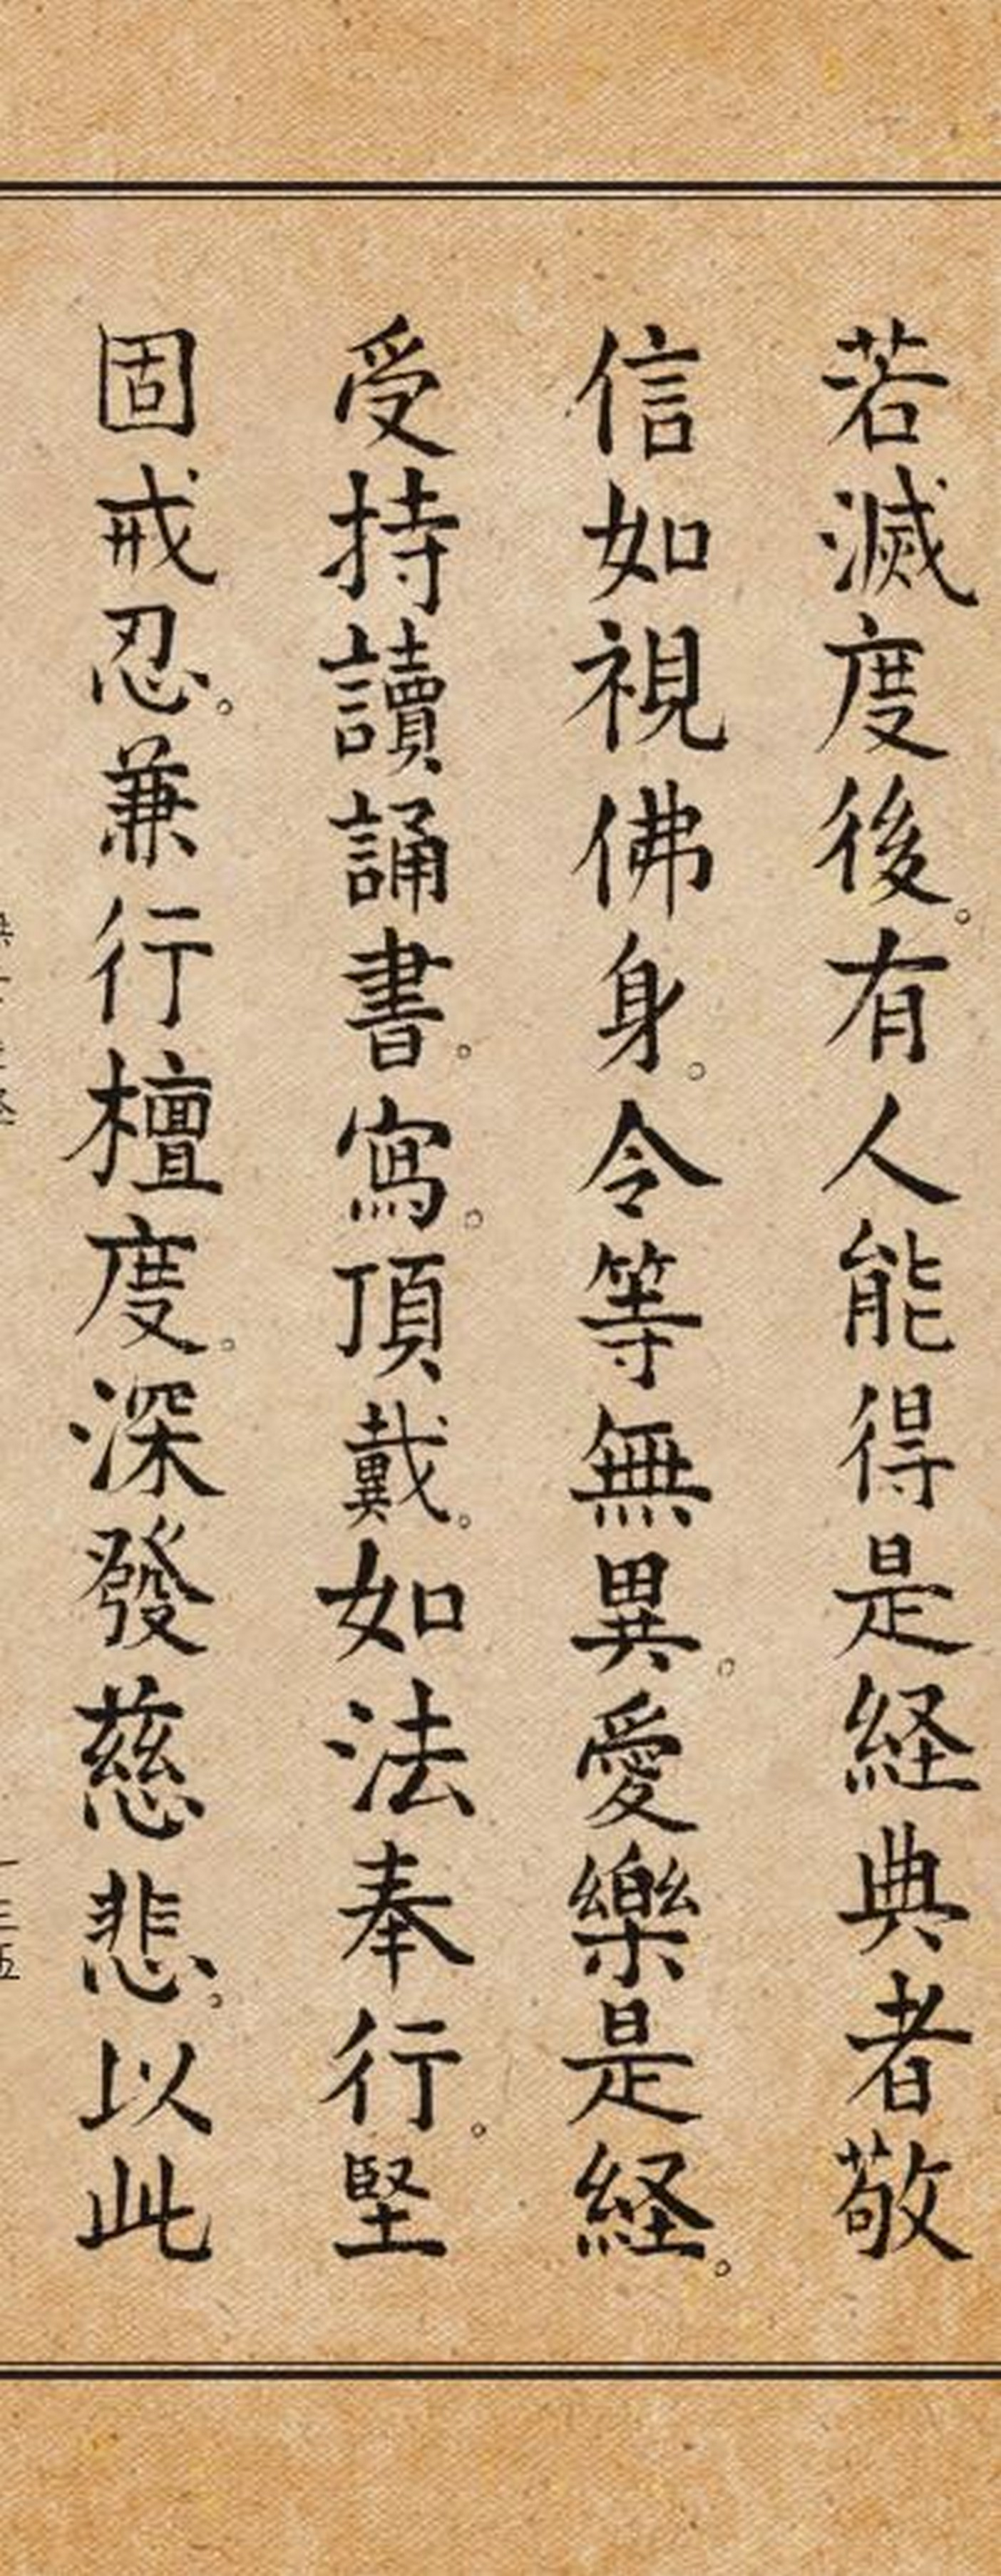 若滅度後。有人能得是経典者敬
信如視佛身。令等無異。愛樂是経。
受持讀誦書。寫。頂戴。如法奉行。堅
固戒忍。兼行檀度。深發慈悲。以此